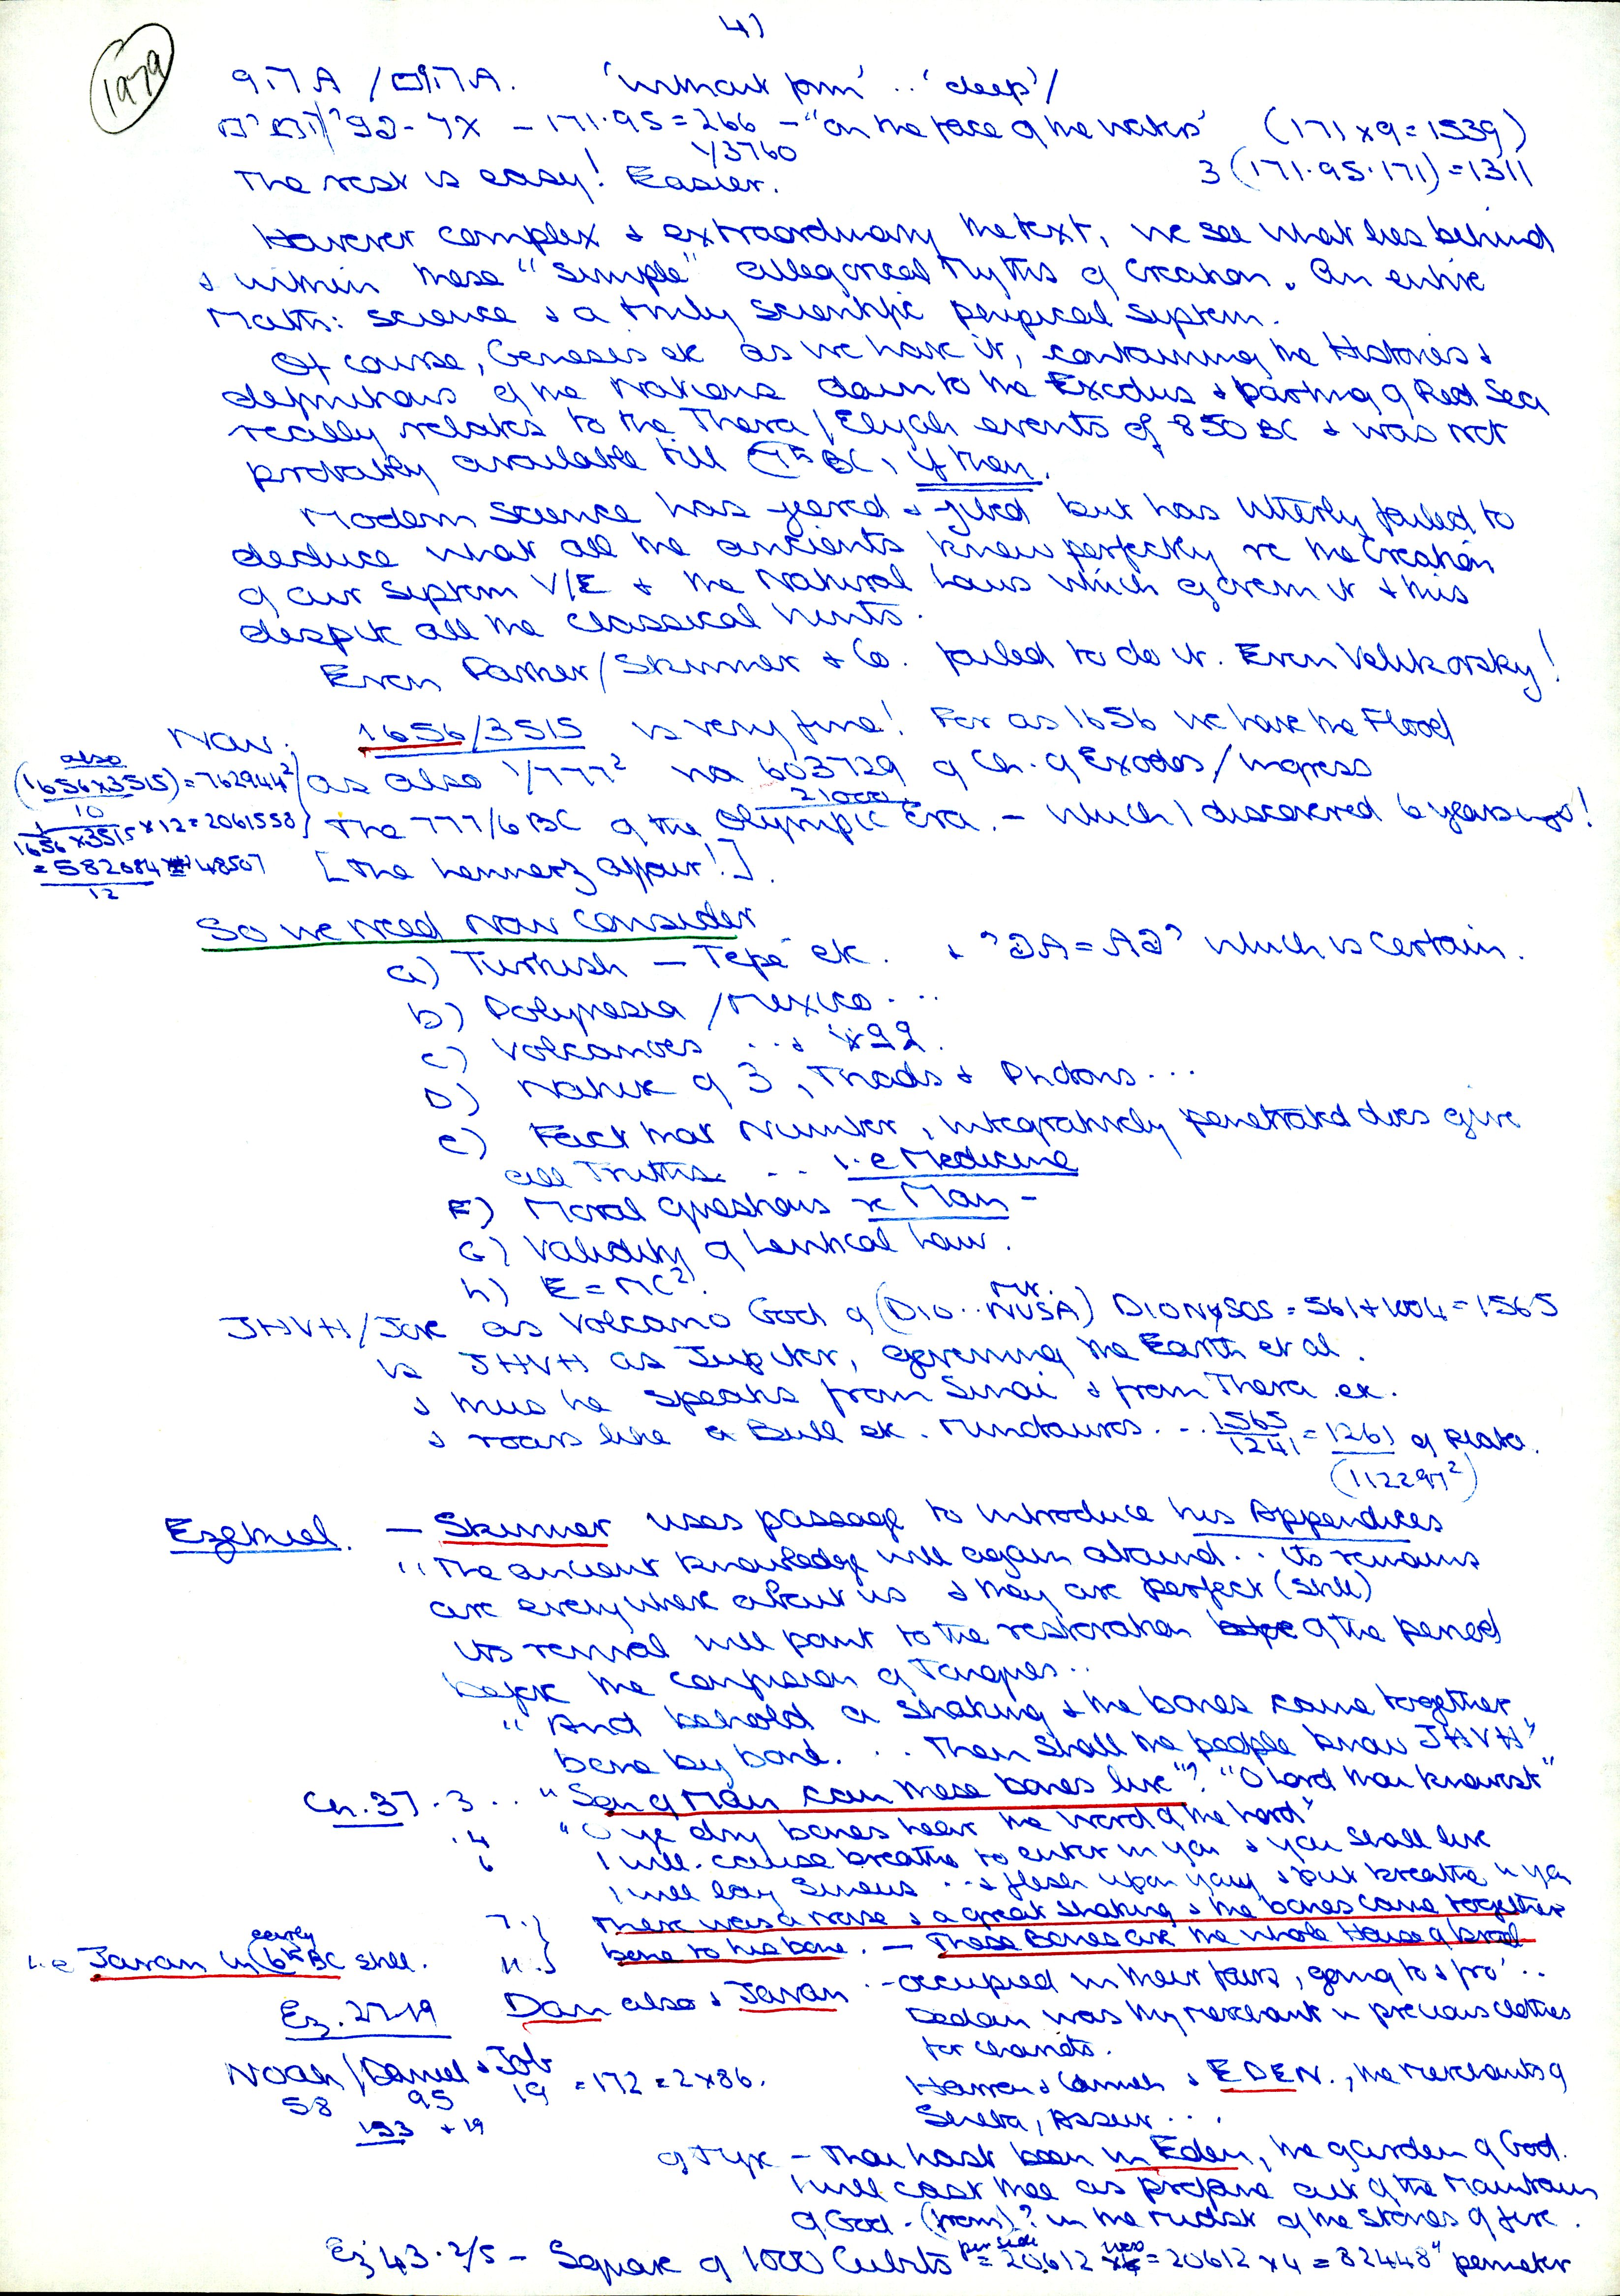 4)
1979
'without form' .. 'deep' /
171·95 = 266 – "on the face of the waters" (171 x 9 = 1539)
1/3760
The rest is easy! Easier. 3(171·95·171) = 1311
However complex & extraordinary the text, we see what lies behind
& within these "simple" allegorical Myths of Creation. An entire
Math: science & a truly scientific physical system.
Of course, Genesis etc as we have it, containing the Histories &
definitions of the Nations down to the Exodus & parting of Red Sea
really relates to the Thera / Elijah events of 850 BC & was not
probably available till 7th BC, if then.
Modern science has yered & but has utterly failed to
deduce what all the ancients knew perfectly re the Creation
of our system V/E & the Natural Laws which govern it & this
despite all the classical hints.
Even Parker/Skinner & Co. failed to do it. Even Velikovsky!
Now: 1656/3515 is very fine! For as 1656 we have the Flood
also
(1656x3515) = 762944²
10
as also 1/777² via 603729 of Ch. of Exodos/Ingress
21000
1
1656 x 3515 x 12 = 2061558
The 777/6 BC of the Olympic Era. – which I discovered 6 years ago!
= 582084 48507
12
[The affair!].
So we need now consider
a) Turkish – Tepe etc. & which is certain.
b) Polynesia / Mexico ...
c) Volcanoes ... &
D) Nature of 3, Triads & Photons ...
e) Fact that Number, integratively penetrated does give
all Truths. ... i.e Medicine
F) Moral questions re Man –
G) Validity of Levitical Law.
h) E = MC².
JHVH/Jove as Volcano God of (DIO .. NUSA) DIONYSOS = 561 + 1004 = 1565
Mt.
is JHVH as Jupiter, governing the Earth et al.
& thus he speaks from Sinai & from Thera etc.
& roars like a Bull etc. Minotauros ... 1565/1241 = 1261 of Plato.
(112297²)
Ezekiel. – Skinner uses passage to introduce his Appendices
"The ancient knowledge will again abound .. Its remains
are everywhere about us & they are perfect (still)
Its revival will point to the restoration of the period
before the confusion of Tongues ..
"And behold a shaking & the bones came together,
bone by bone. .. Then shall the people know JHVH"
Ch. 37. 3 .. "Son of Man can these bones live"? "O Lord thou knowest"
.4 "O ye dry bones hear the word of the Lord"
6 I will cause breath to enter in you & you shall live
I will lay Sinews ... & flesh upon you & put breath in you
7.} There was a noise & a great shaking & the bones came together
11.} bone to his bone. – These Bones are the whole House of Israel
i.e Javan in early 6th BC still.
Ez. 27.19 Dan also & Javan .. – occupied in their fairs, going to & fro' ..
Dedan was thy merchant in precious clothes
for chariots.
Noah / Daniel & Job = 172 = 2 x 86.
58 95 19
153 + 19
Harran & Canneh & EDEN., the merchants of
Sheba, Assur ...
of Tyre – Thou hast been in Eden, the garden of God.
I will cast thee as profane out of the Mountain
of God – (from)? in the midst of the stones of fire.
Ez 43. 2/5 – Square of 1000 Cubits = 20612 per side = 20612 x 4 = 82448" perimeter